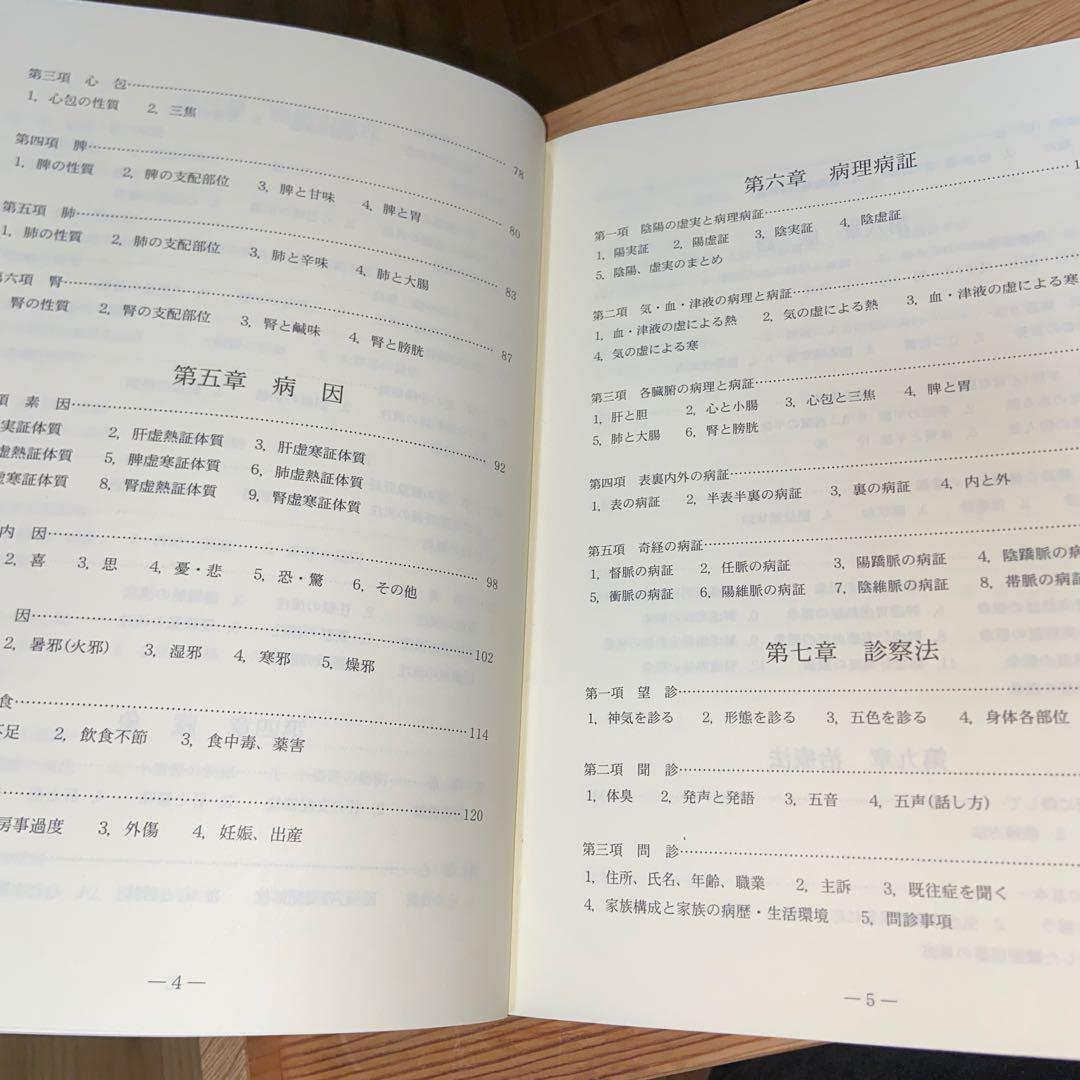 第三項 心 包……78
1, 心包の性質 2, 三焦
第四項 脾……80
1, 脾の性質 2, 脾の支配部位 3, 脾と甘味 4, 脾と胃
第五項 肺……83
1, 肺の性質 2, 肺の支配部位 3, 肺と辛味 4, 肺と大腸
第六項 腎……87
腎の性質 2, 腎の支配部位 3, 腎と鹹味 4, 腎と膀胱
第五章 病 因
項 素 因……92
実証体質 2, 肝虚熱証体質 3, 肝虚寒証体質
虚熱証体質 5, 脾虚寒証体質 6, 肺虚熱証体質
虚寒証体質 8, 腎虚熱証体質 9, 腎虚寒証体質
内 因……98
2, 喜 3, 思 4, 憂・悲 5, 恐・驚 6, その他
因……102
2, 暑邪(火邪) 3, 湿邪 4, 寒邪 5, 燥邪
食……114
不足 2, 飲食不節 3, 食中毒、薬害
……120
房事過度 3, 外傷 4, 妊娠、出産
—4—
第六章 病理病証
第一項 陰陽の虚実と病理病証……1
1, 陽実証 2, 陽虚証 3, 陰実証 4, 陰虚証
5, 陰陽、虚実のまとめ
第二項 気・血・津液の病理と病証……
1, 血・津液の虚による熱 2, 気の虚による熱 3, 血・津液の虚による寒
4, 気の虚による寒
第三項 各臓腑の病理と病証……
1, 肝と胆 2, 心と小腸 3, 心包と三焦 4, 脾と胃
5, 肺と大腸 6, 腎と膀胱
第四項 表裏内外の病証……
1, 表の病証 2, 半表半裏の病証 3, 裏の病証 4, 内と外
第五項 奇経の病証……
1, 督脈の病証 2, 任脈の病証 3, 陽蹻脈の病証 4, 陰蹻脈の病証
5, 衝脈の病証 6, 陽維脈の病証 7, 陰維脈の病証 8, 帯脈の病証
第七章 診察法
第一項 望 診……
1, 神気を診る 2, 形態を診る 3, 五色を診る 4, 身体各部位
第二項 聞 診……
1, 体臭 2, 発声と発語 3, 五音 4, 五声(話し方)
第三項 問 診……
1, 住所、氏名、年齢、職業 2, 主訴 3, 既往症を聞く
4, 家族構成と家族の病歴・生活環境 5, 問診事項
—5—